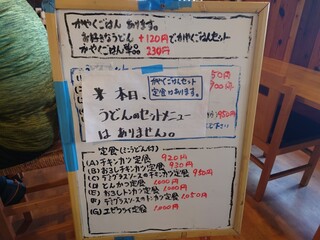 かやくごはん あります。
お好きなうどん +120円でかやくごはんセット
かやくごはん単品 230円
かやくごはんセット
定食はあります。
※本日、
うどんのセットメニュー
はありません。
50円
900円
950円
定食(ミニうどん付)
(A)チキンカツ定食 920円
(B)おろしチキンカツ定食 930円
(C)デミグラスソースのチキンカツ定食 950円
(D)とんかつ定食 1000円
(E)おろしトンカツ定食 1000円
(F)デミグラスソースのトンカツ定食 1050円
(G)エビフライ定食 1000円